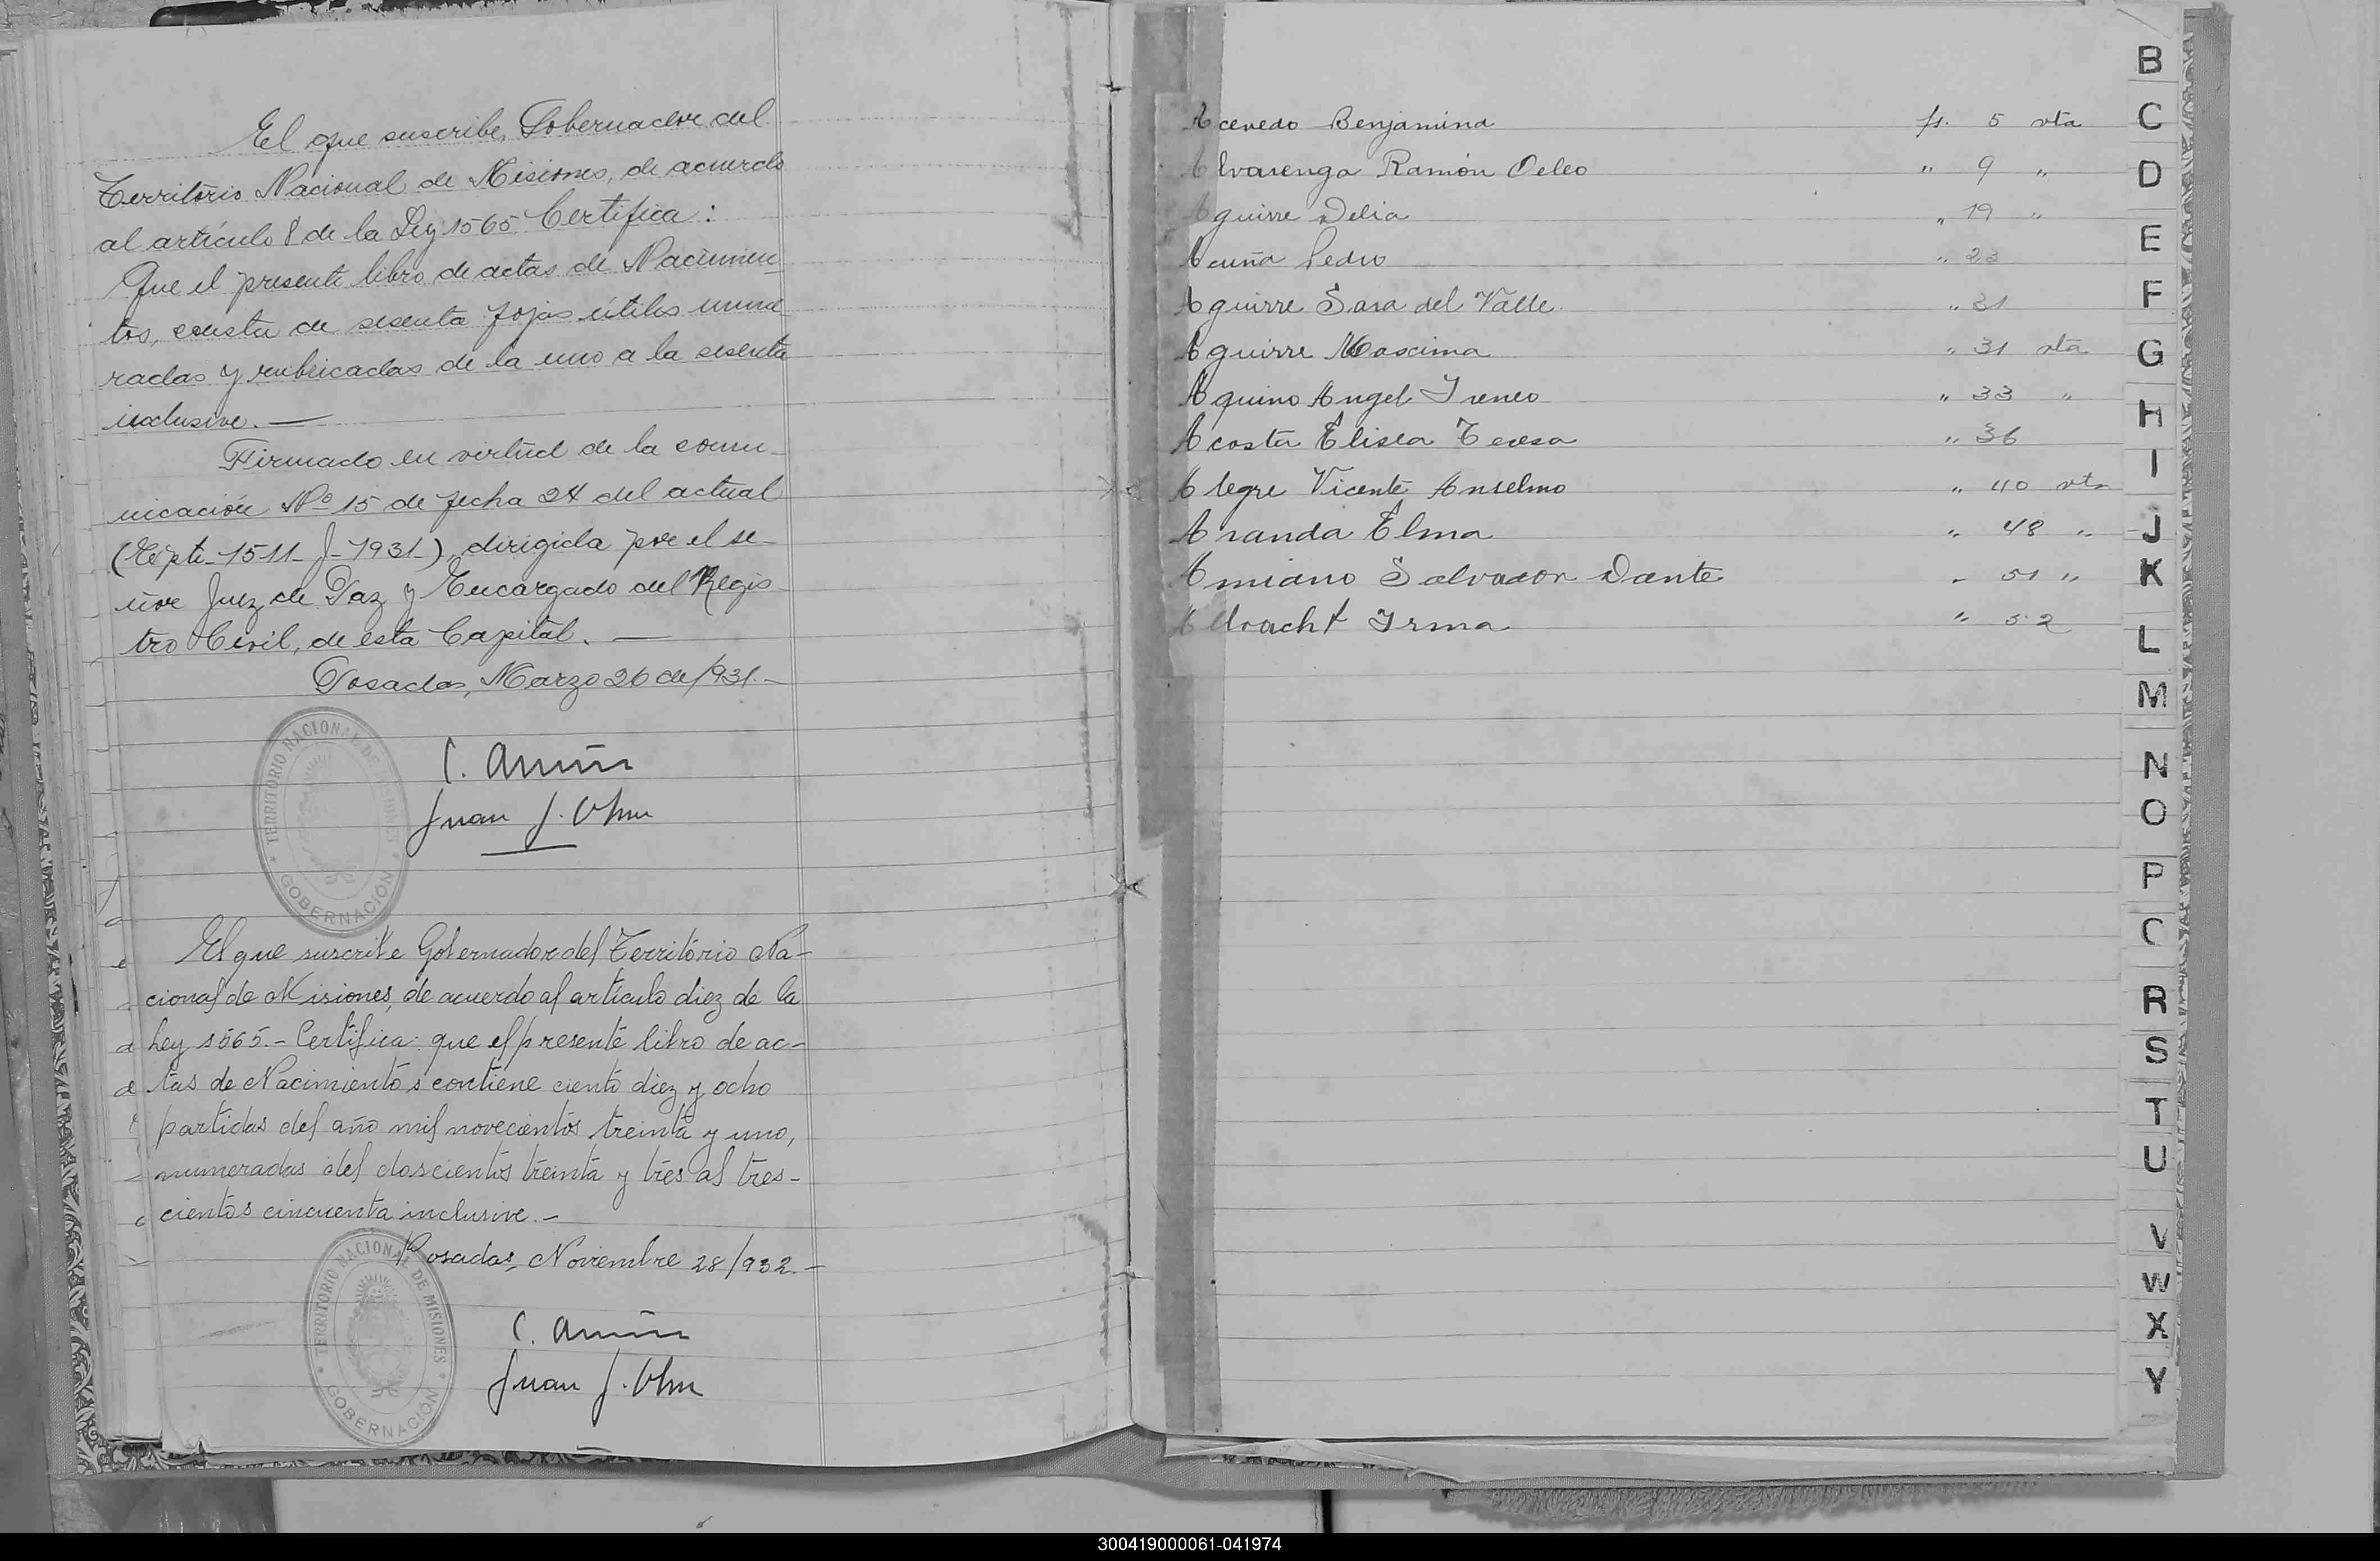 El que suscribe, Gobernador del
Territorio Nacional de Misiones, de acuerdo
al artículo 8 de la Ley 1565 Certifica:
Que el presente libro de actas de Nacimien-
tos, consta de sesenta fojas útiles nume
radas y rubricadas de la uno a la sesenta
inclusive. —
Firmado en virtud de la comu-
nicación Nº 15 de fecha 24 del actual
(Expte-1511-J-1931-), dirigida por el se-
ñor Juez de Paz y Encargado del Regis-
tro Civil, de esta Capital. —
Posadas, Marzo 26 de/931.-
TERRITORIO NACIONAL DE MISIONES
GOBERNACIÓN
Juan J.
El que suscribe Gobernador del Territorio Na-
cional de Misiones, de acuerdo al artículo diez de la
Ley 1565.- Certifica: que el presente libro de ac-
tas de Nacimientos contiene ciento diez y ocho
partidas del año mil novecientos treinta y uno,
numeradas del doscientos treinta y tres al tres-
cientos cincuenta inclusive.-
Posadas, Noviembre 28/932.-
TERRITORIO NACIONAL DE MISIONES
GOBERNACIÓN
Juan J.
Acevedo Benjamina fs. 5 vta
Alvarenga Ramón " 9 "
Aguirre Delia " 19 "
Acuña Pedro " 23
Aguirre Sara del Valle " 31
Aguirre Maxima " 31 vta
Aquino Angel Ireneo " 33 "
Acosta Elisea Teresa " 36
Alegre Vicente Anselmo " 40 vta
Aranda Elma " 48 "
Amiano Salvador Dante " 51 "
Irma " 52
B
C
D
E
F
G
H
I
J
K
L
M
N
O
P
C
R
S
T
U
V
W
X
Y
300419000061-041974